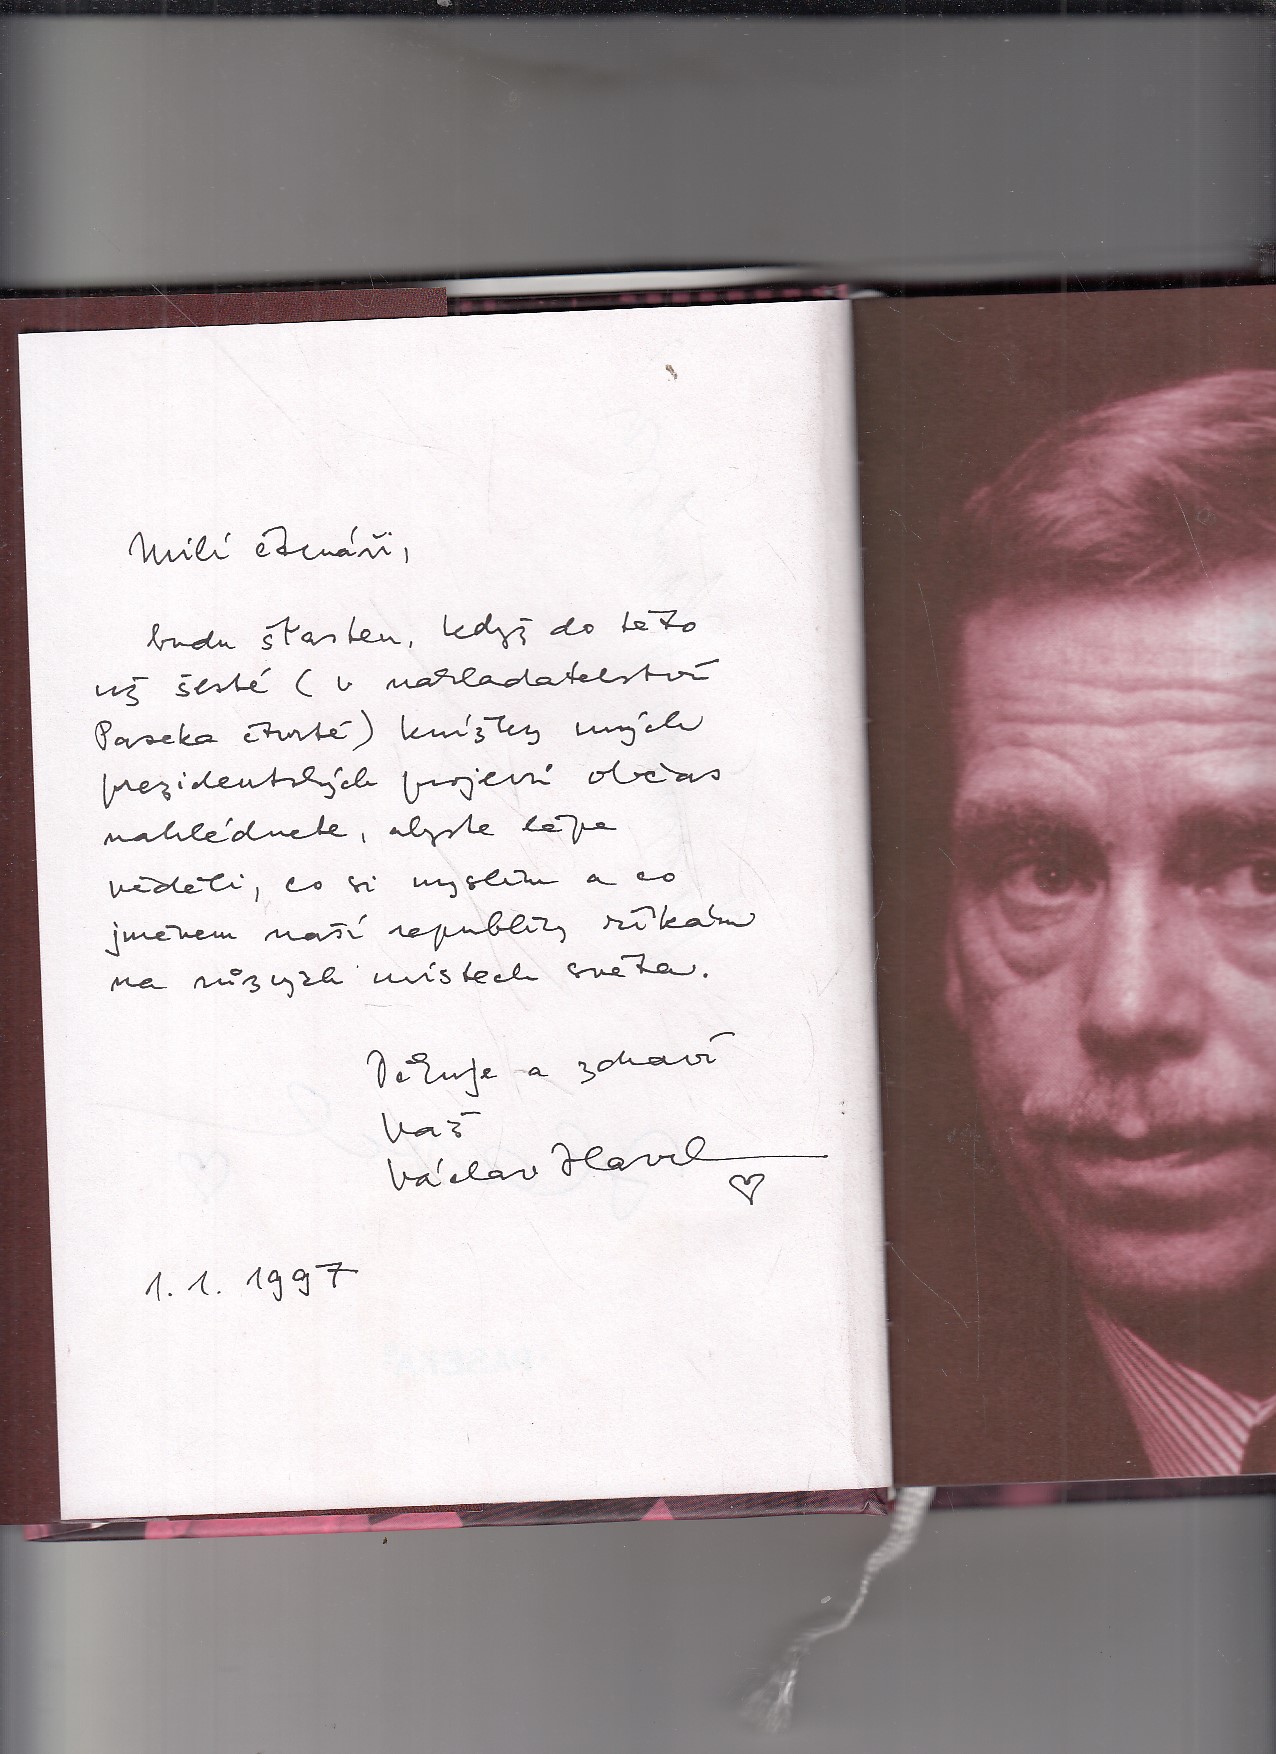 Milí čtenáři,
budu šťasten, když do této
už šesté (v nakladatelství
Paseka čtvrté) knížky mých
prezidentských projevů občas
nahlédnete, abyste lépe
věděli, co si myslím a co
jménem naší republiky říkám
na různých místech světa.
Děkuje a zdraví
Váš
Václav Havel
1.1.1997